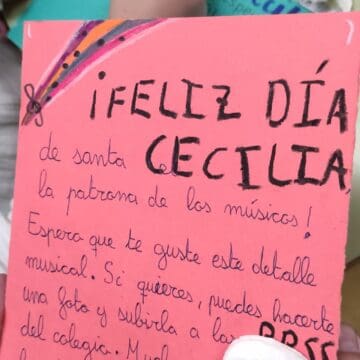 ¡FELIZ DÍA
de santa CECILIA,
la patrona de los músicos!
Espero que te guste este detalle
musical. Si quieres, puedes hacerte
una foto y subirla a las RRSS
del colegio.